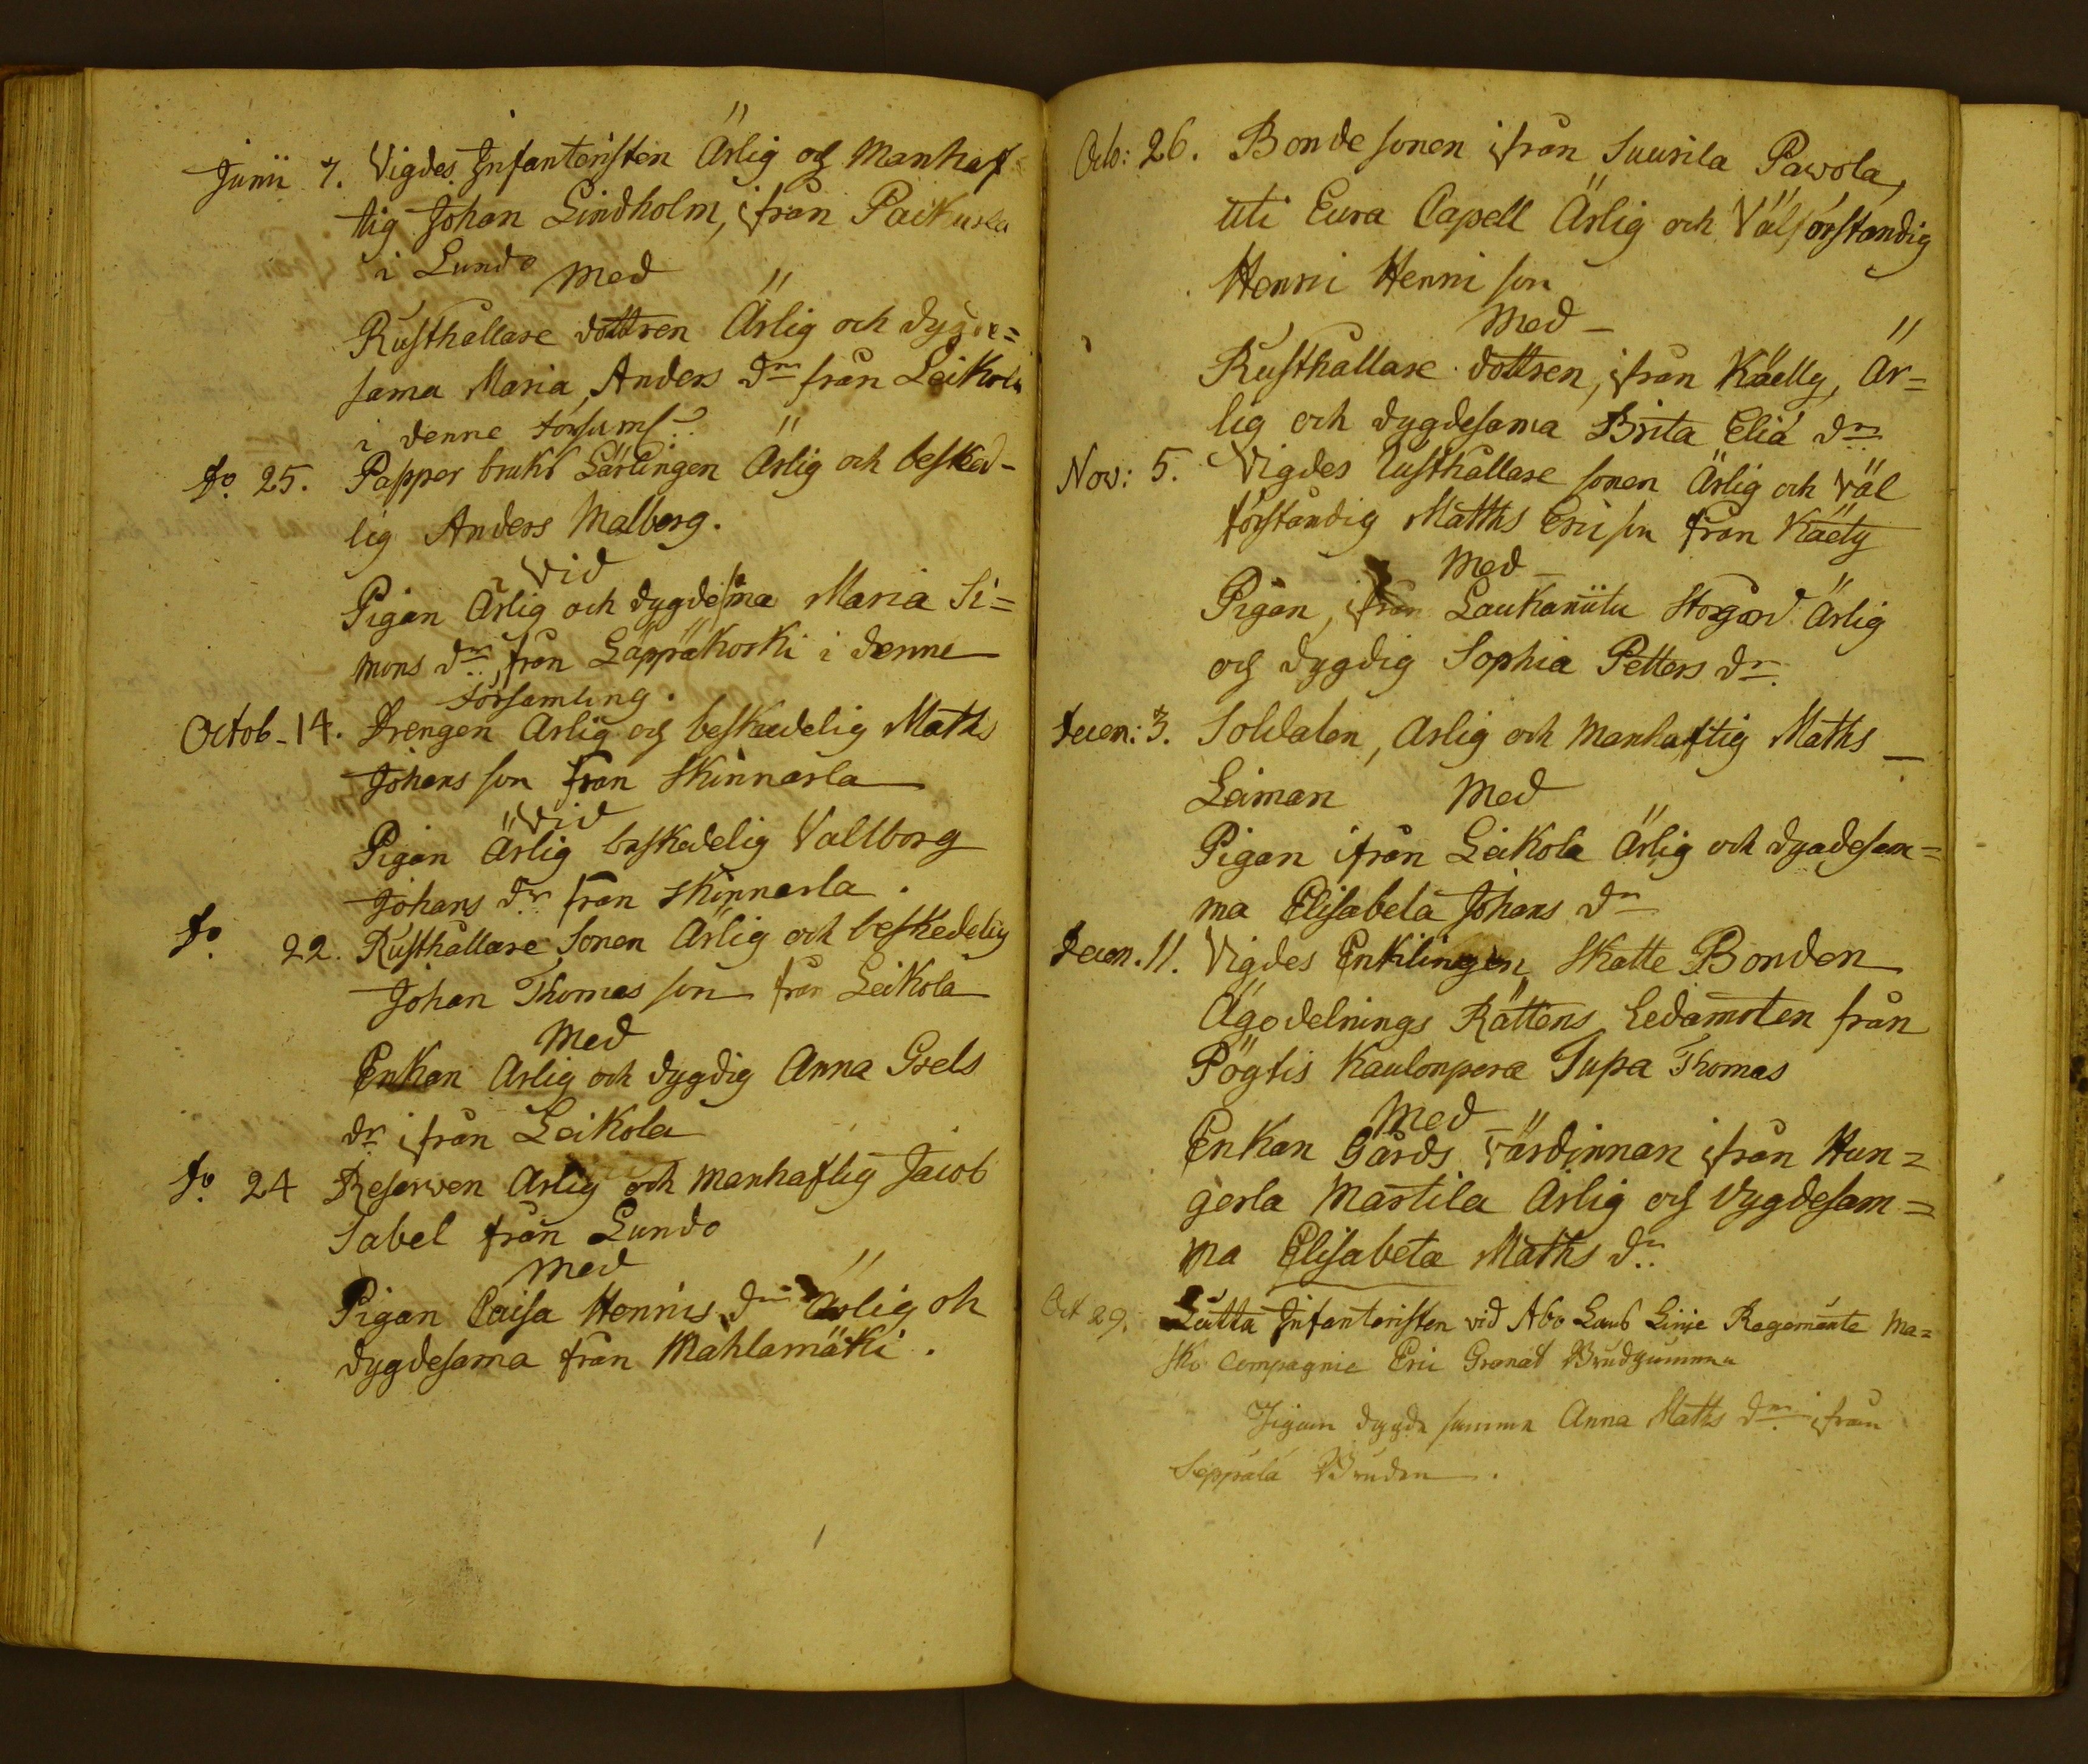 Junii 7. Vigdes Infanteristen Ärlig og Manhaf
tig Johan Lindholm, ifrån Paikusla
i Lundo
Med
Rusthållare dottren Ärlig och dygde=
sama Maria Anders dr från Leikola
i denne Församl:
do 25. Papper bruks Lärlingen Ärlig och besked-
lig Anders Malberg.
vid
Pigan Ärlig och dygdesma Maria Si=
mons dr, från Läppäkoski i denne
Församling.
Octob-14. Drengen Ärlig og beskedelig Maths
Johans son från Skinnarla
vid
Pigan Ärlig beskedelig Vallborg
Johans dr från Skinnarla.
do 22. Rusthållare Sonen Ärlig och beskedelig
Johan Thomas son från Leikola
Med
Enkan Ärlig och dygdig Anna Grels
dr ifrån Leikola
do 24 Reserven Ärlig och manhaftig Jacob
Sabel från Lundo
Med
Pigan Caisa Henris dr Ärlig oh
dygdesama från Mahlamäki.
Octo: 26. Bonde sonen ifrån Suurila Pawola,
uti Eura Capell Ärlig och Välförståndig
Henri Henri son
Med
Rusthållare dottren, ifrån Käelly, Är=
lig och dygdesama Brita Eliä dr
Nov: 5. Vigdes Rusthållare sonen Ärlig och väl
förståndig Matths Eric son från Käely
Med
Pigan, ifrån Laukaniitu Storgård Ärlig
og dygdig Sophia Petters dr.
Decen: 3. Soldaten, Ärlig och Manhaftig Maths
Leiman Med
Pigan ifrån Leikola Ärlig och dygdesam=
ma Elisabeta Johans dr
Decen. 11. Vigdes Enkilingen Skatte Bonden
Ägodelnings Rättens Ledamoten från
Pögtis Kaulonpera Tupa Thomas
Med
Enkan Gårds värdinnan ifrån Hun=
gerla Martila Ärlig og dygdesam=
ma Elisabeta Maths dr.
Oct 29. Lätta Infanteristen vid Abo Länds Linje Regemente Ma=
sko Compagnie Eric Granat Brudgummen
Pigan dygdesamma Anna Maths dr. ifrån
Seppälä Bruden.